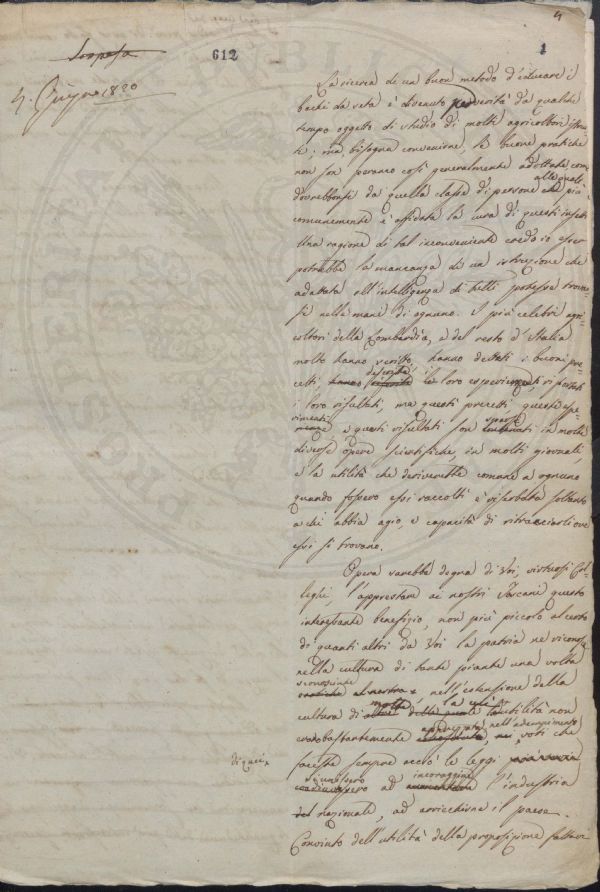 4
Sospesa
612
1
4. Giugno 1820
La ricerca di un buon metodo d'educare i
bachi da seta è divenuto per verità da qualche
tempo oggetto di studio di molti agricoltori istrui
ti; ma, bisogna convenirne, le buone pratiche
non son peranco così generalmente adottate come
dovrebbonsi da quella classe di persone alle quali più
comunemente è affidata la cura di questi insetti
Una ragione di tal inconveniente credo io esser
potrebbe la mancanza di un istruzione che
adattata all'intelligenza di tutti potesse trovar
si nelle mani di ognuno. I più celebri agri
coltori della Lombardia, e del resto d'Italia
molto hanno scritto, hanno dettati i buoni pre
cetti, descritte le loro esperienze, riportati
i loro risultati, ma questi precetti queste espe
rimenti e questi risultati son sparsi in molte
diverse opere scientifiche, in molti giornali,
e la utilità che deriverebbe comune a ognuno
quando fossero essi raccolti è riserbata soltanto
a chi abbia agio, e capacità di rintracciarli ove
essi si trovano.
Opera sarebbe degna di Voi virtuosi Col-
leghi, l'apprestare ai nostri Toscani questo
interessante benefizio, non più piccolo al certo
di quanti altri da Voi la patria ne riconosce
nella cultura di tante piante una volta
sconosciute nell'estensione della
cultura di molte la cui utilità non
era bastantemente apprezzata nell'adempimento
di quei voti che
faceste sempre acciò le leggi
ad incoraggire l'industria
nazionale, ad arricchirne il paese.
Convinto dell'utilità della proposizione fattavi